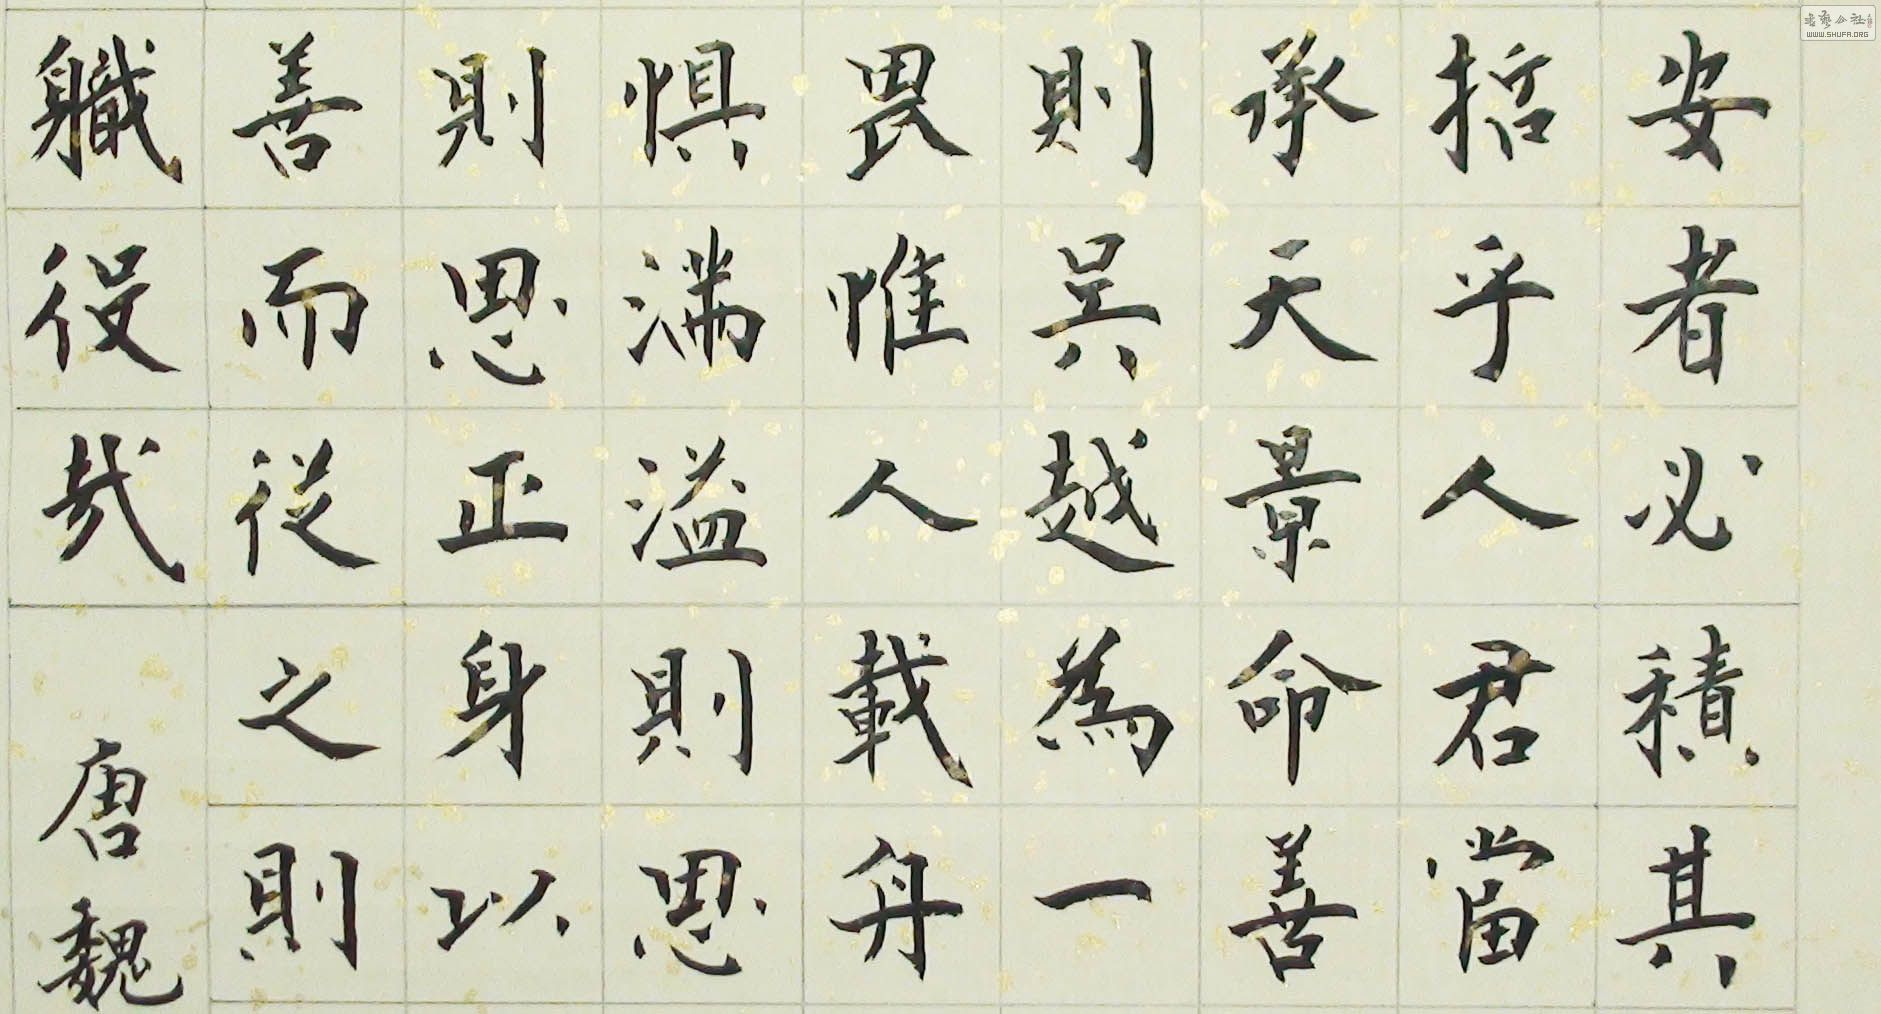 安者必積其
哲乎人君當
承天景命善
則吳越為一
畏惟人載舟
懼滿溢則思
則思正身以
善而從之則
職役哉
唐魏
书艺公社
WWW.SHUFA.ORG